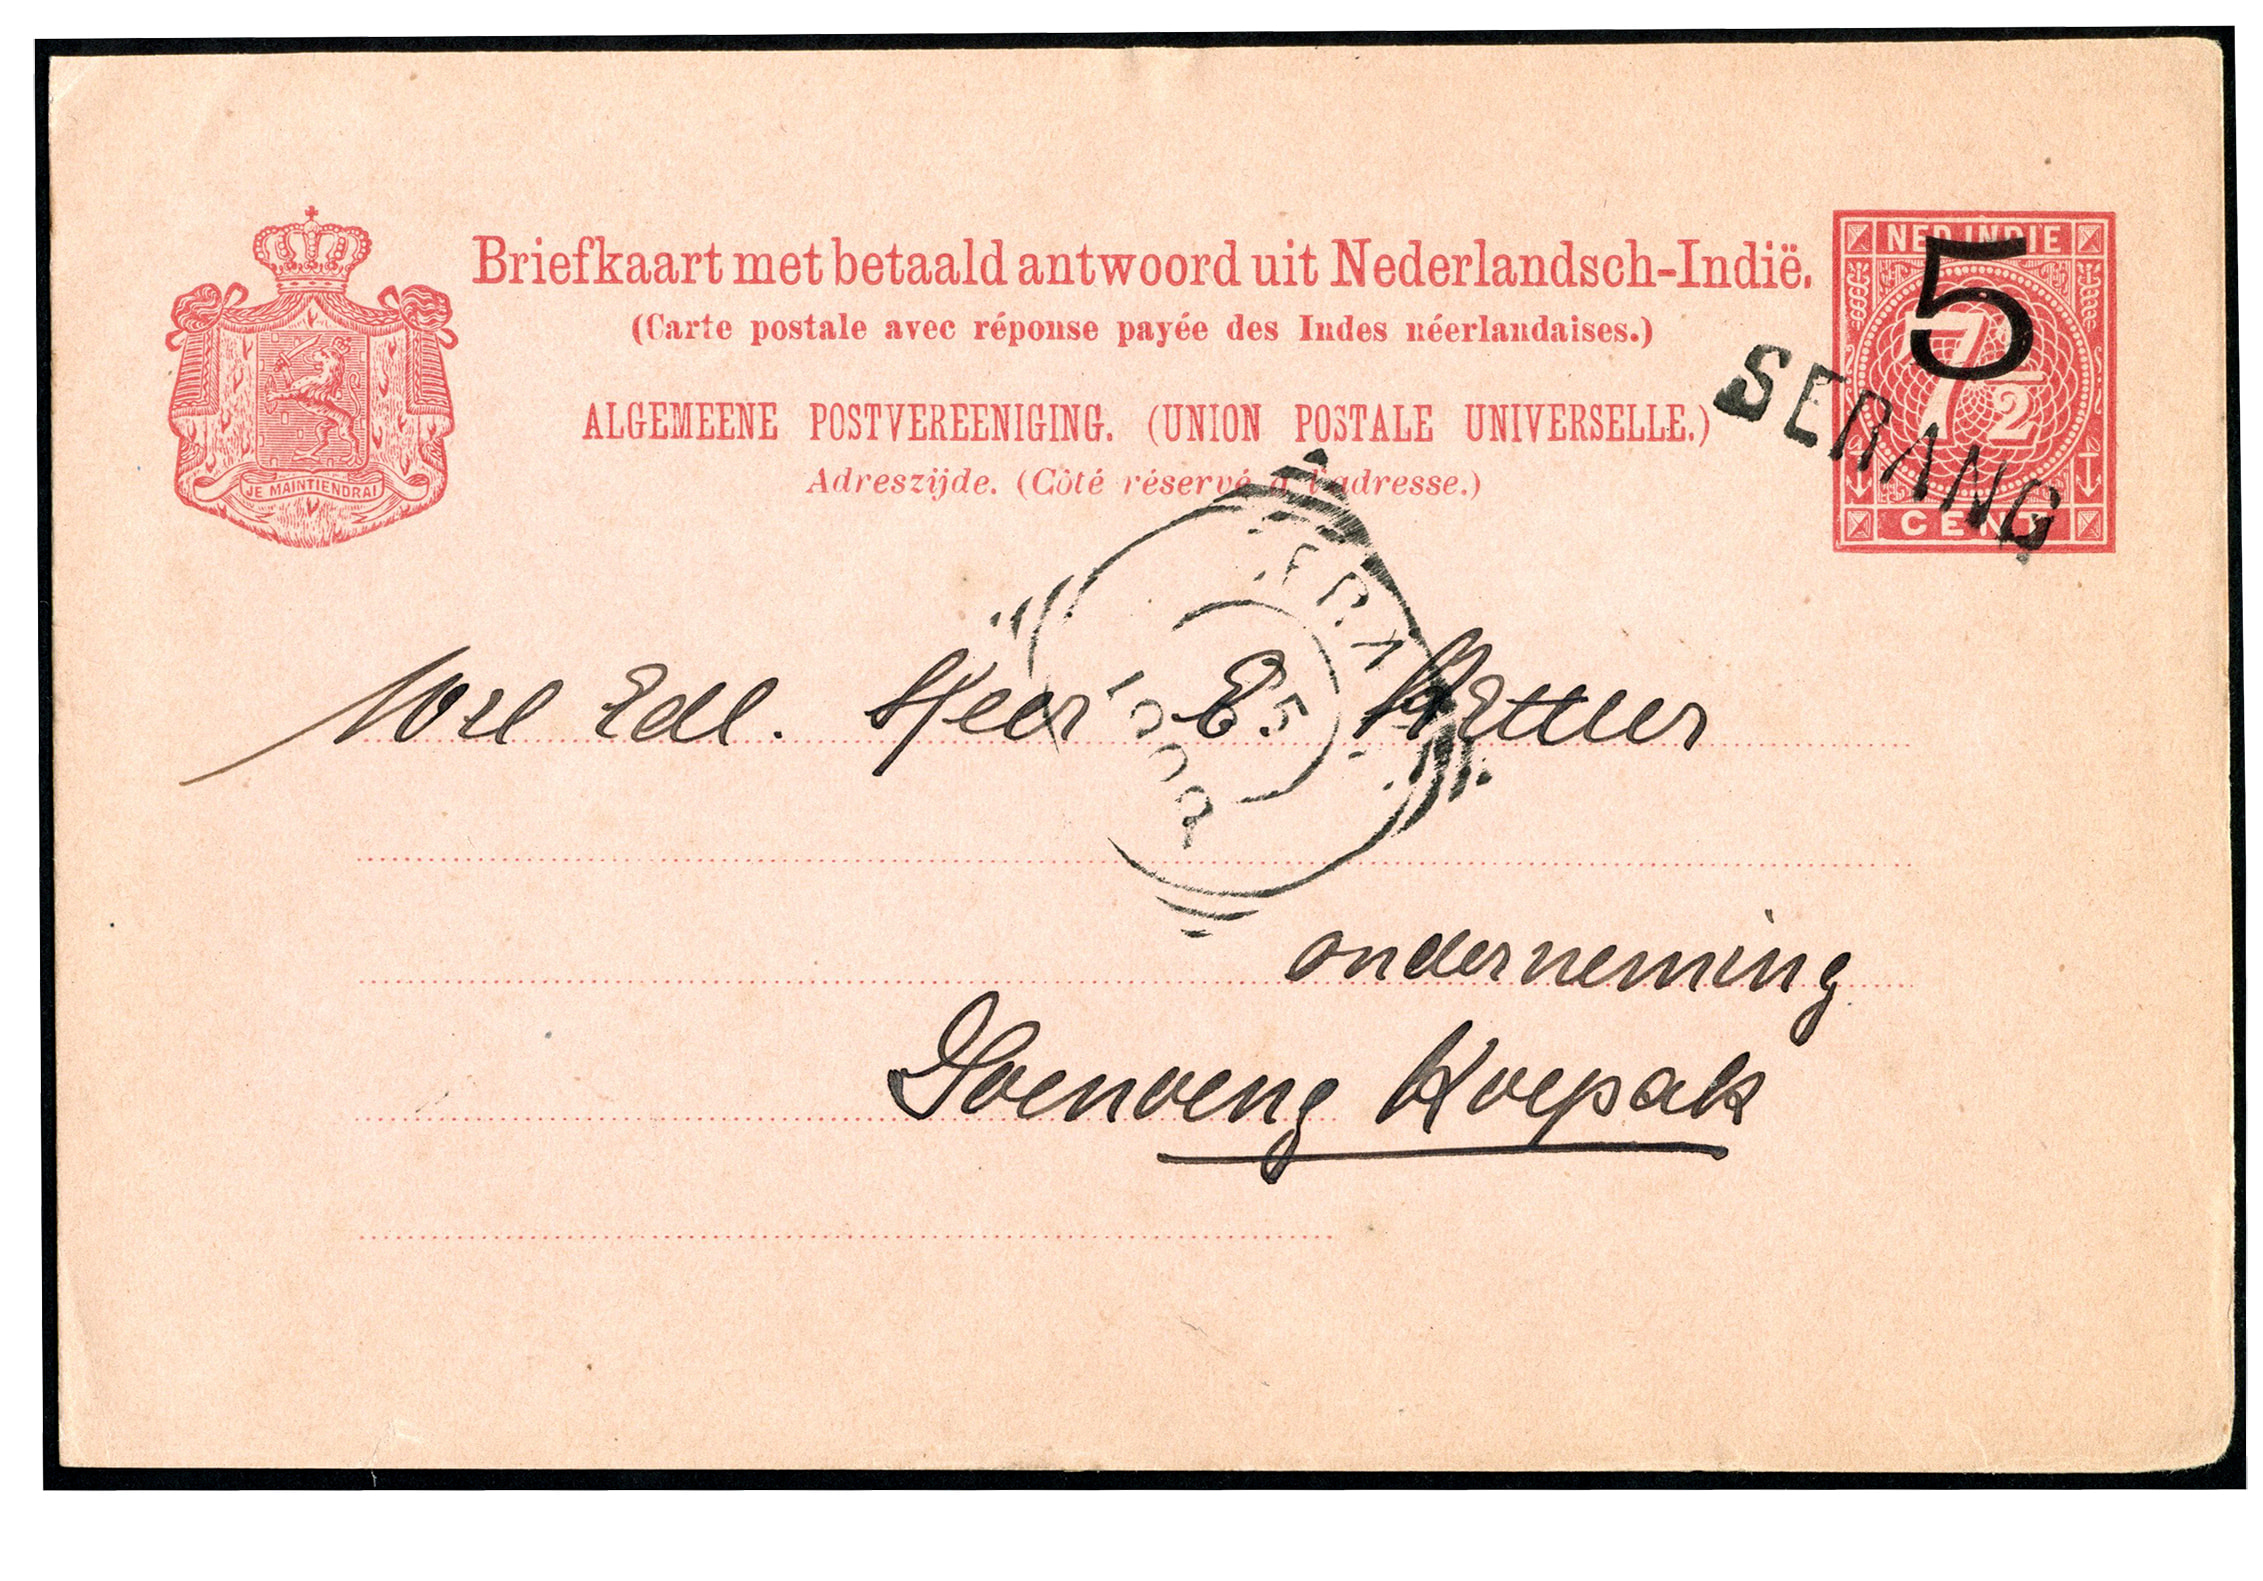 Briefkaart met betaald antwoord uit Nederlandsch-Indië.
(Carte postale avec réponse payée des Indes néerlandaises.)
ALGEMEENE POSTVEREENIGING. (UNION POSTALE UNIVERSELLE.)
Adreszijde. (Côté réservé à l'adresse.)
JE MAINTIENDRAI
NED. INDIE
5
7 1/2
CENT
SERANG
Wel Edl. Heer E.
onderneming
Goenoeng Koepak